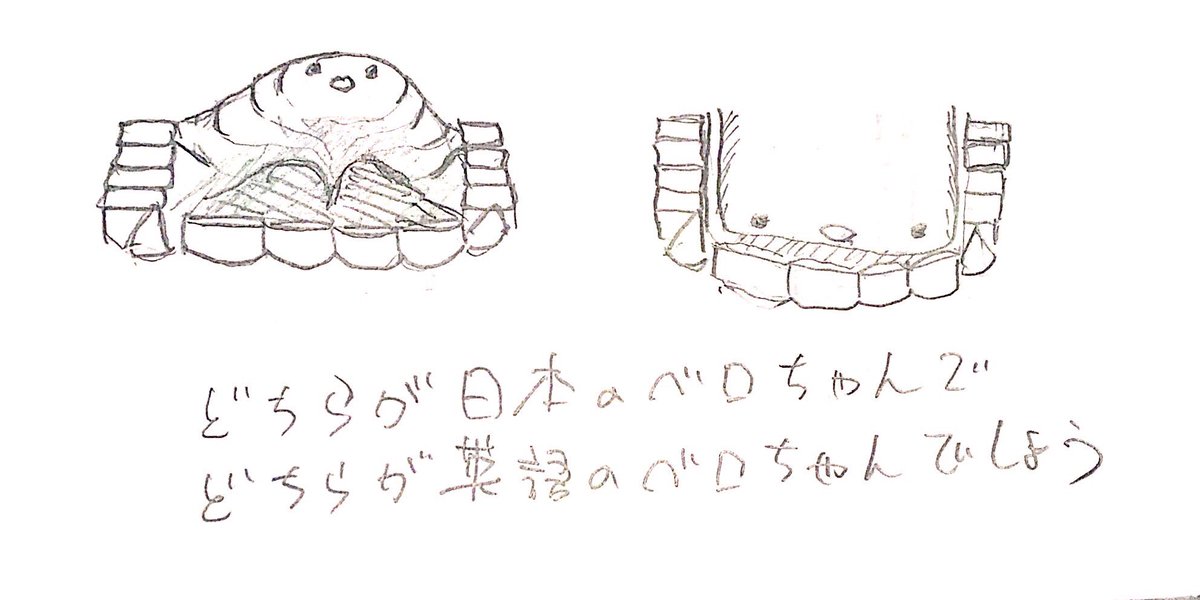 どちらが日本のベロちゃんで
どちらが英語のベロちゃんでしょう